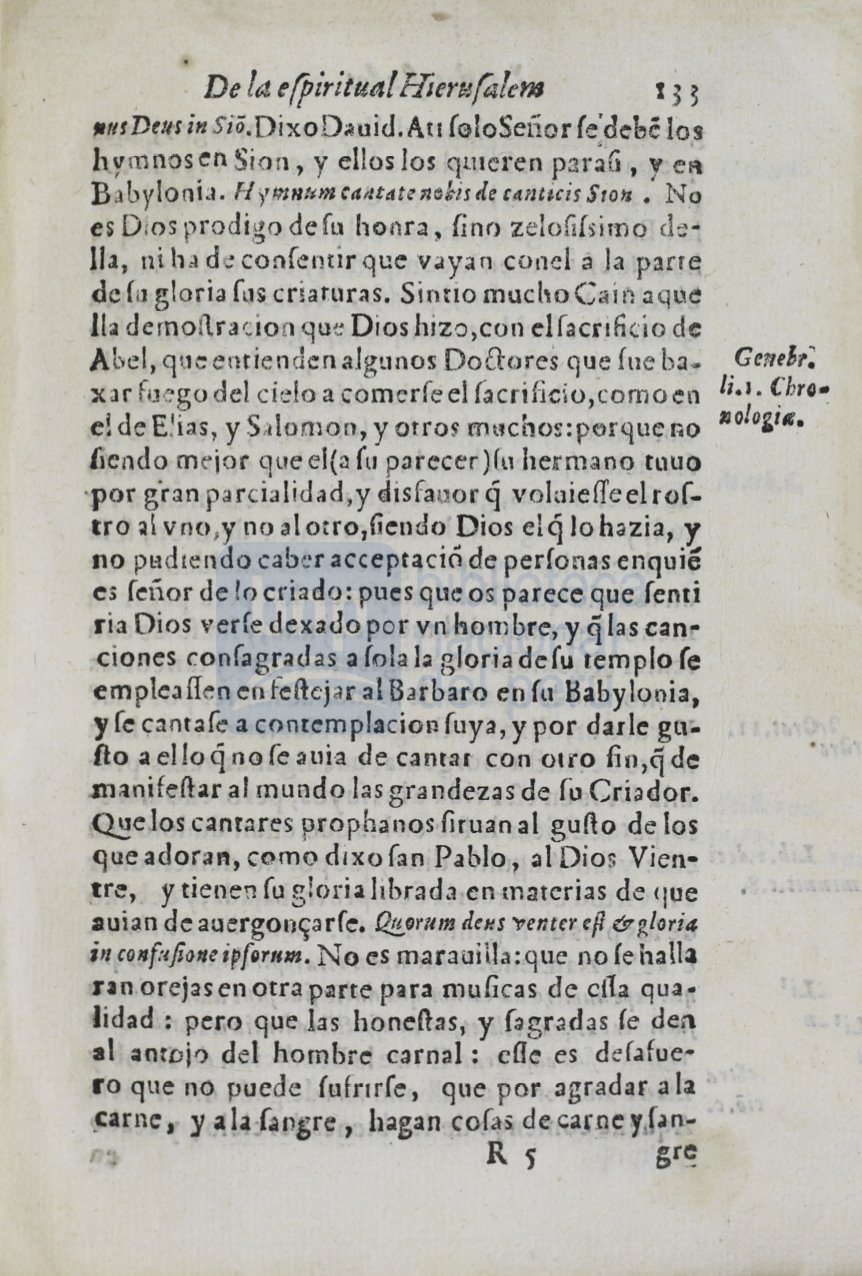 De la eſpiritual Hieruſalem 133
nus Deus in Siõ. Dixo Dauid. A ti ſolo Señor ſe debẽ los
hymnos en Sion, y ellos los quieren para ſi, y en
Babylonia. Hymnum cantate nobis de canticis Sion. No
es Dios prodigo de ſu honra, ſino zeloſiſsimo de-
lla, ni ha de conſentir que vayan con el a la parte
de ſu gloria ſus criaturas. Sintio mucho Cain aque
lla demoſtracion que Dios hizo, con el ſacrificio de
Abel, que entienden algunos Doctores que fue ba-
xar fuego del cielo a comerſe el ſacrificio, como en
el de Elias, y Salomon, y otros muchos: porque no
ſiendo mejor que el (a ſu parecer) ſu hermano tuuo
por gran parcialidad, y disfauor q̃ voluieſſe el roſ-
tro al vno, y no al otro, ſiendo Dios el q̃ lo hazia, y
no pudiendo caber acceptaciõ de perſonas en quiẽ
es ſeñor de lo criado: pues que os parece que ſenti
ria Dios verſe dexado por vn hombre, y q̃ las can-
ciones conſagradas a ſola la gloria de ſu templo ſe
empleaſſen en feſtejar al Barbaro en ſu Babylonia,
y ſe cantaſe a contemplacion ſuya, y por darle gu-
ſto a el lo q̃ no ſe auia de cantar con otro fin, q̃ de
manifeſtar al mundo las grandezas de ſu Criador.
Que los cantares prophanos ſiruan al guſto de los
que adoran, como dixo ſan Pablo, al Dios Vien-
tre, y tienen ſu gloria librada en materias de que
auian de auergonçarſe. Quorum deus venter eſt & gloria
in confuſione ipſorum. No es marauilla: que no ſe halla
ran orejas en otra parte para muſicas de eſſa qua-
lidad : pero que las honeſtas, y ſagradas ſe den
al antojo del hombre carnal : eſſe es deſafue-
ro que no puede ſufrirſe, que por agradar a la
carne, y a la ſangre, hagan coſas de carne y ſan-
R 5 gre
Genebr.
li.1. Chro-
nologiæ.